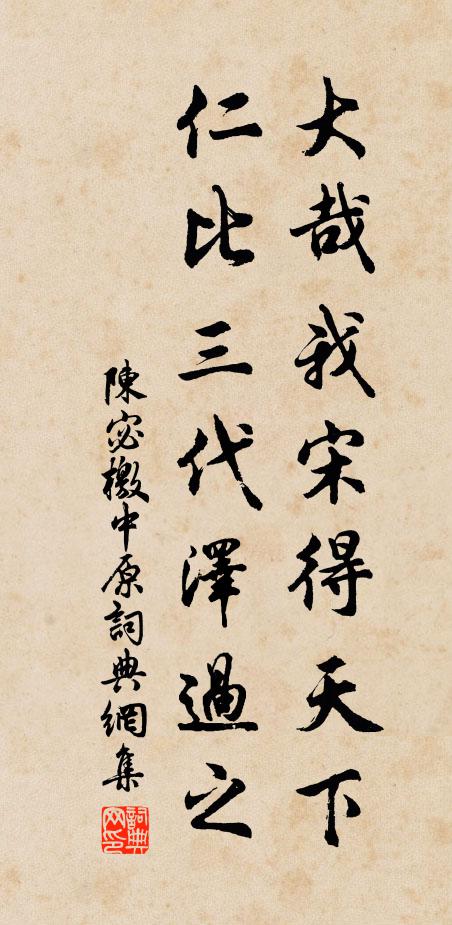 大哉我宋得天下
仁比三代澤過之
陳宓檄中原詞典網集
詞典网印